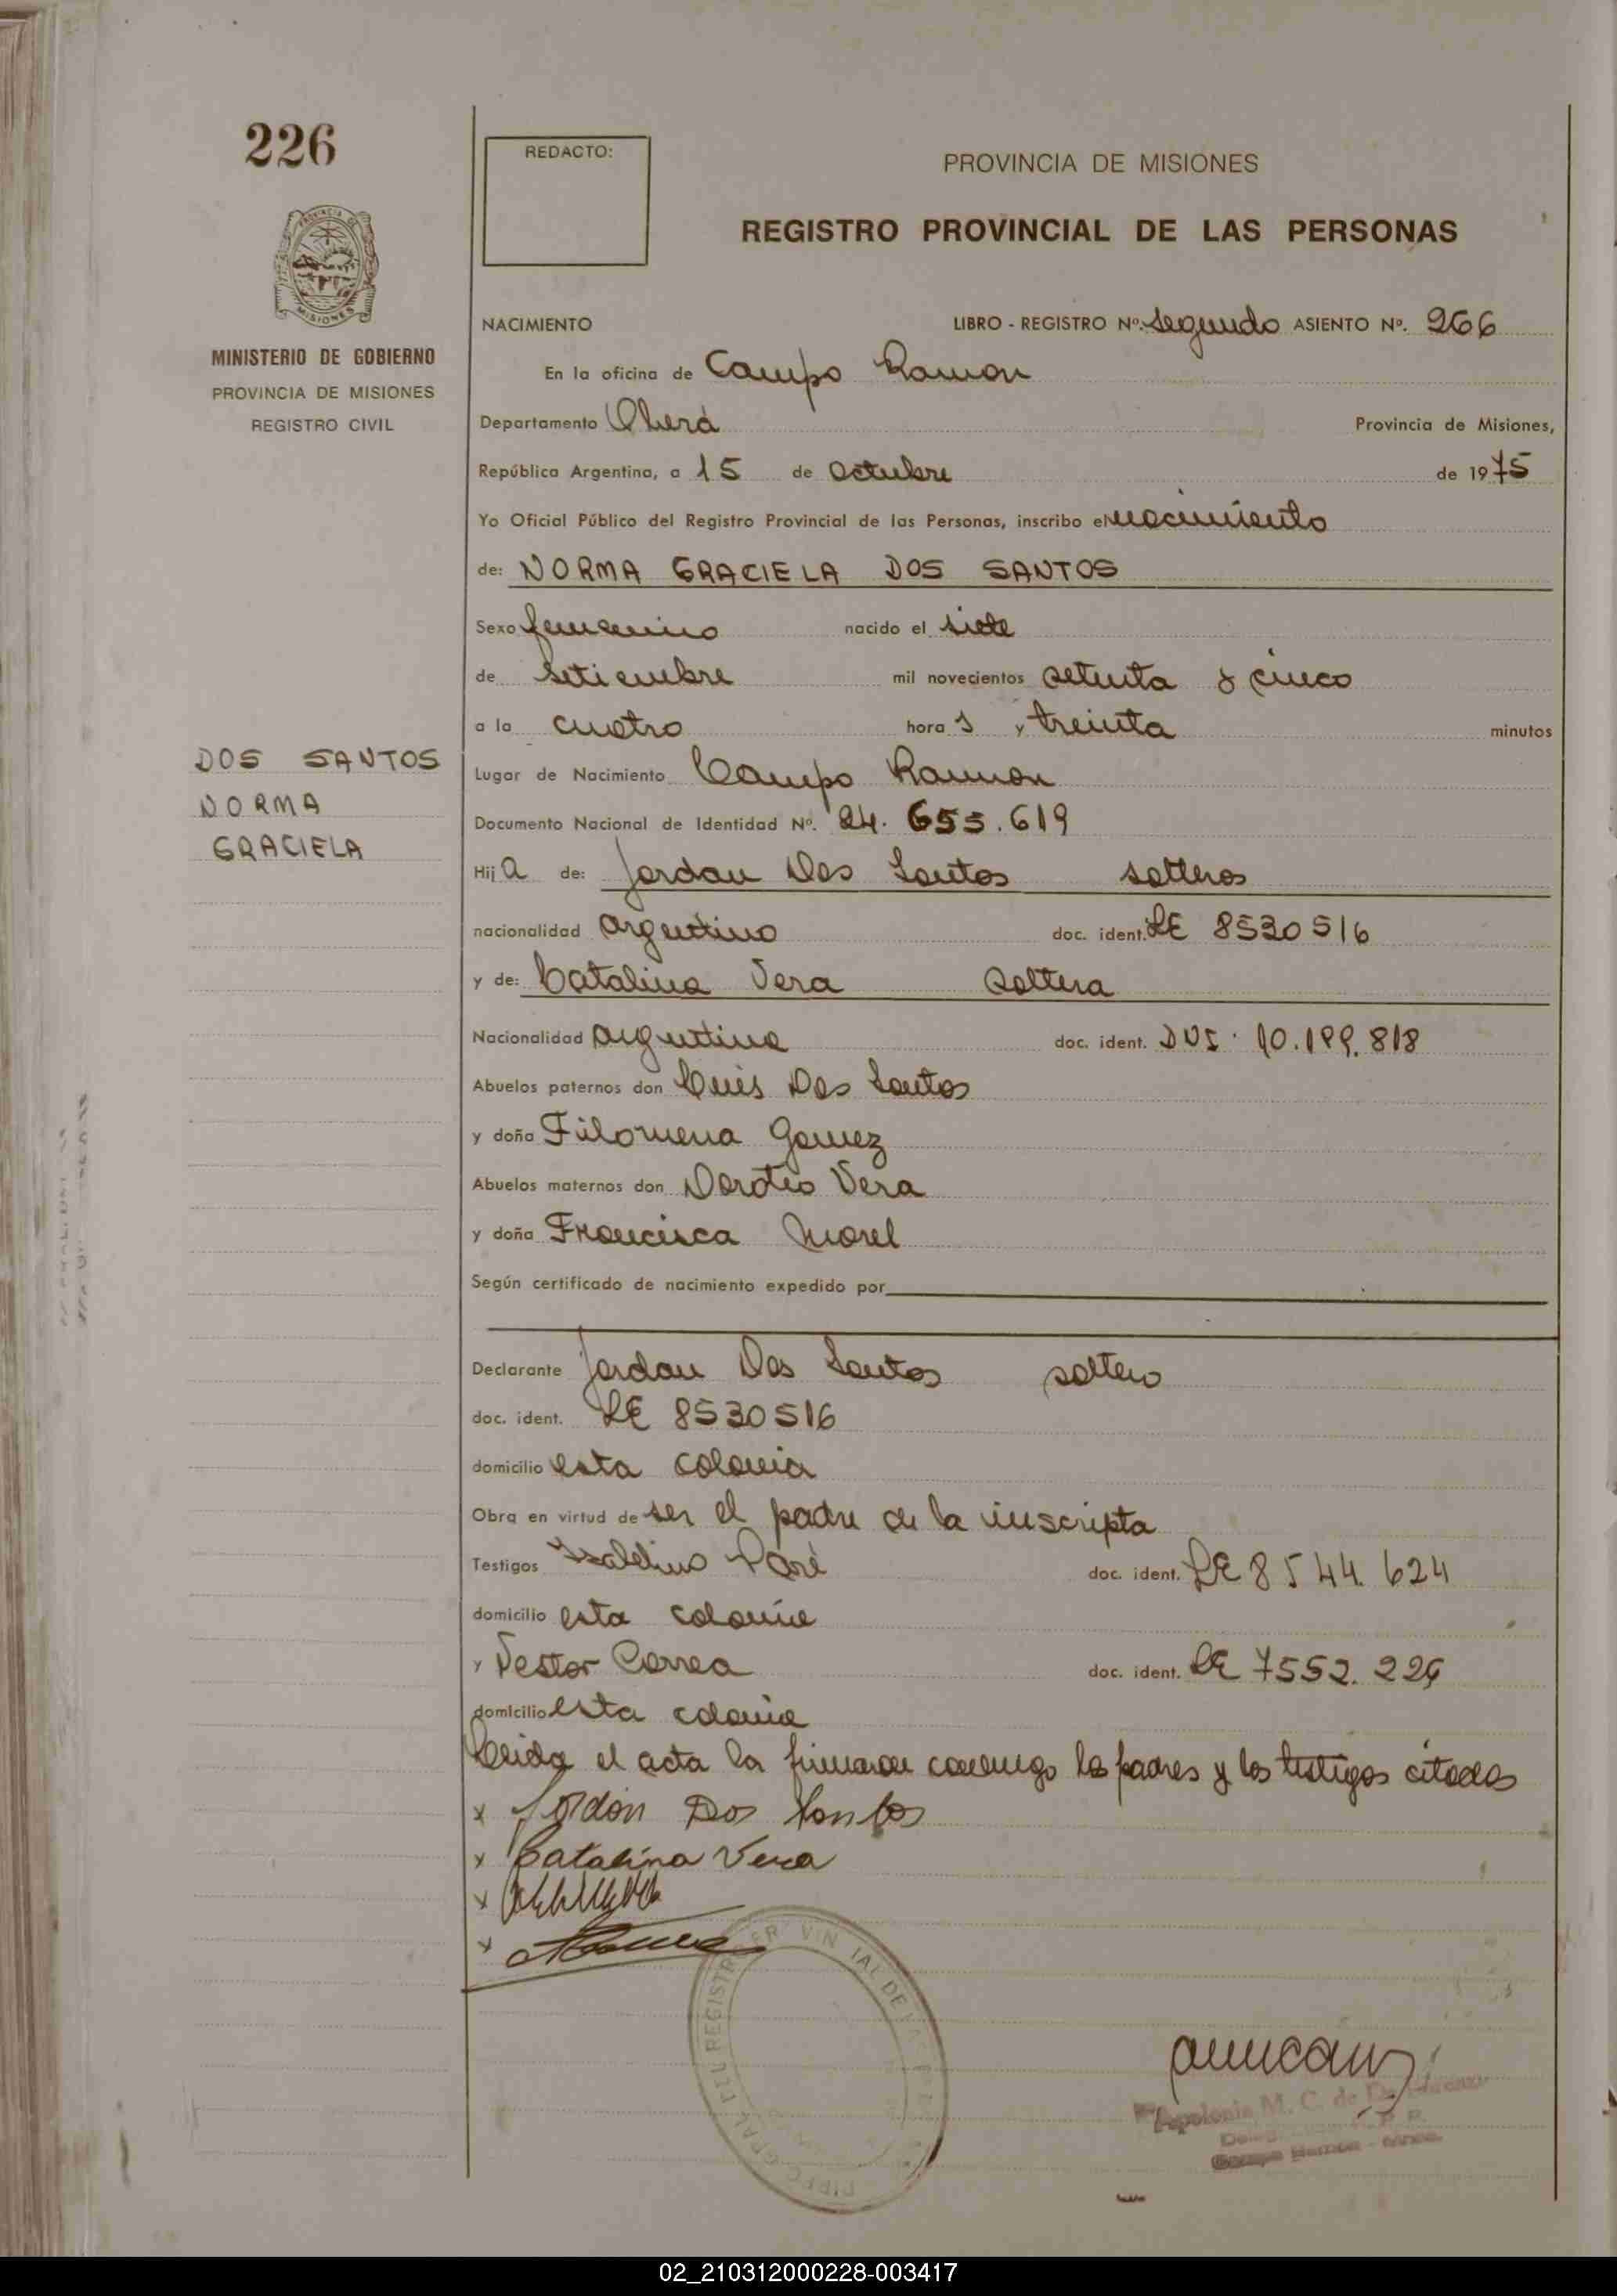 226
REDACTO:
PROVINCIA DE MISIONES
REGISTRO PROVINCIAL DE LAS PERSONAS
MISIONES
MINISTERIO DE GOBIERNO
PROVINCIA DE MISIONES
REGISTRO CIVIL
NACIMIENTO LIBRO - REGISTRO Nº. Segundo ASIENTO Nº. 266
En la oficina de Campo Ramon
Departamento Oberá Provincia de Misiones,
República Argentina, a 15 de octubre de 1975
Yo Oficial Público del Registro Provincial de las Personas, inscribo el nacimiento
de: NORMA GRACIELA DOS SANTOS
Sexo femenino nacido el siete
de setiembre mil novecientos setenta y cinco
a la cuatro hora s y treinta minutos
DOS SANTOS
NORMA
GRACIELA
Lugar de Nacimiento Campo Ramon
Documento Nacional de Identidad Nº. 24.655.619
Hij a de: Jordan Dos Santos solteros
nacionalidad argentino doc. ident. LE 8530516
y de: Catalina Vera soltera
Nacionalidad argentina doc. ident. DNI. 10.199.818
Abuelos paternos don Luis Dos Santos
y doña Filomena Gomez
Abuelos maternos don Doroteo Vera
y doña Francisca Morel
Según certificado de nacimiento expedido por
Declarante Jordan Dos Santos soltero
doc. ident. LE 8530516
domicilio esta colonia
Obra en virtud de ser el padre de la inscripta
Testigos doc. ident. LE 8544.624
domicilio esta colonia
y Nestor Correa doc. ident. LE 7552.226
domicilio esta colonia
Leida el acta la firmaron conmigo los padres y los testigos citados
x Jordán Dos Santos
x Catalina Vera
x
x
Apolonia M. C. de
Campo Ramón - Mnes.
02_210312000228-003417